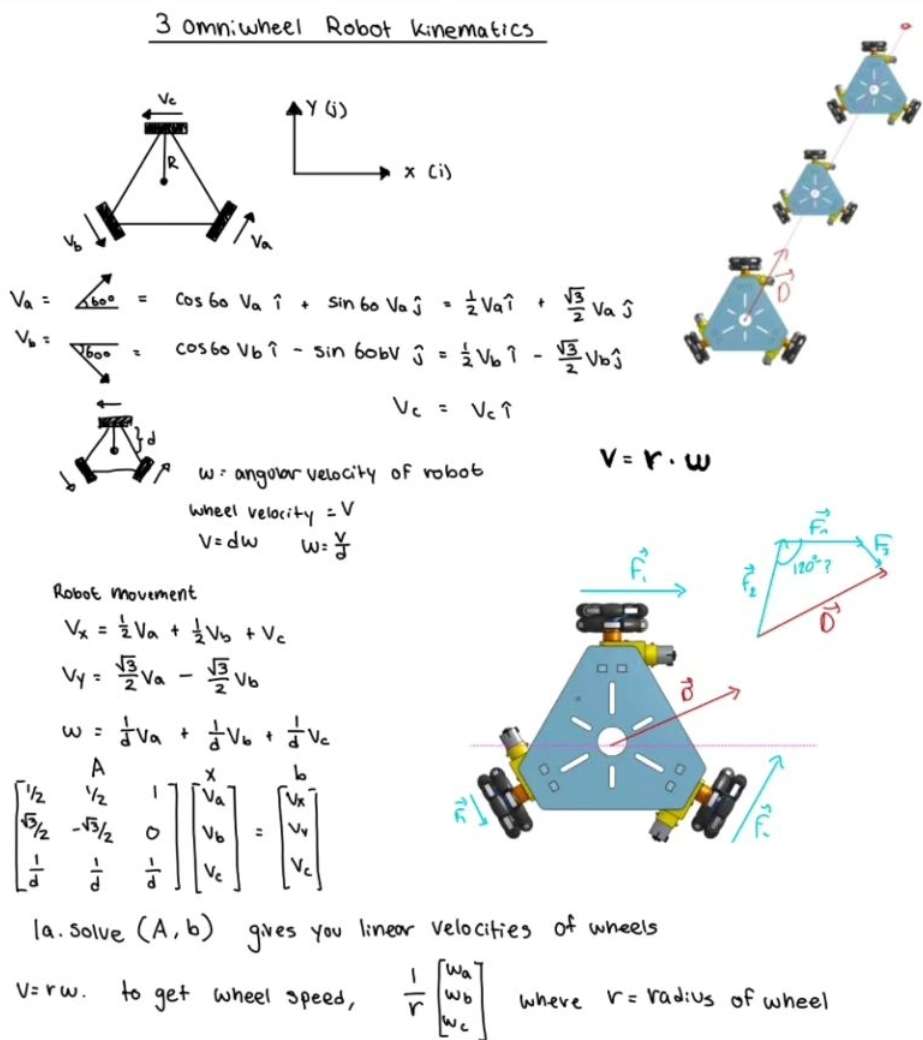 3 omniwheel Robot Kinematics
Vc
Y (j)
R
x (i)
Vb
Va
Va = 60° = cos 60 Va î + sin 60 Va ĵ = 1/2 Va î + √3/2 Va ĵ
Vb = 60° = cos60 Vb î - sin 60bV ĵ = 1/2 Vb î - √3/2 Vb ĵ
Vc = Vc î
D
d
w = angular velocity of robot
wheel velocity = V
V = dw w = V/d
V = r . w
Robot movement
Vx = 1/2 Va + 1/2 Vb + Vc
Vy = √3/2 Va - √3/2 Vb
w = 1/d Va + 1/d Vb + 1/d Vc
A x b
1/2 1/2 1 Va Vx
√3/2 -√3/2 0 Vb = Vy
1/d 1/d 1/d Vc Vc
F₁
120°?
F₂
D
D
la.solve (A, b) gives you linear velocities of wheels
V = rw. to get wheel speed, 1/r [wa wb wc] where r = radius of wheel